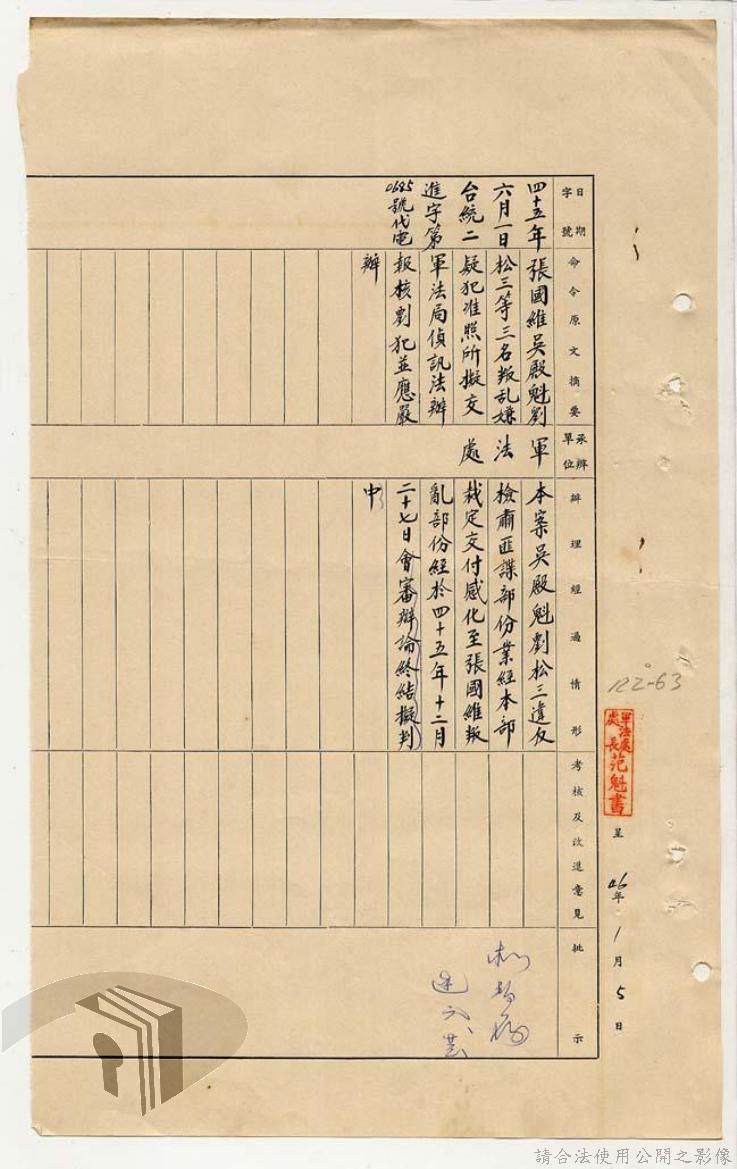 122-63
軍法處
處長
范魁書
呈
46年1月5日
日期
字號
四十五年
六月一日
台統二
進字第
0685
號代電
命令原文摘要
張國維吳殿魁劉
松三等三名叛乱嫌
疑犯准照所擬交
軍法局偵訊法辦
報核劉犯並應嚴
辦
承辦
單位
軍
法
處
辦理經過情形
本案吳殿魁劉松三違反
檢肅匪諜部份業經本部
裁定交付感化至張國維叛
亂部份經於四十五年十二月
二十七日會審辯論終結擬判
中
考核及改進意見
批示
請合法使用公開之影像